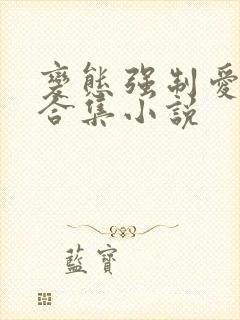 變態强制愛
合集小説
藍寶